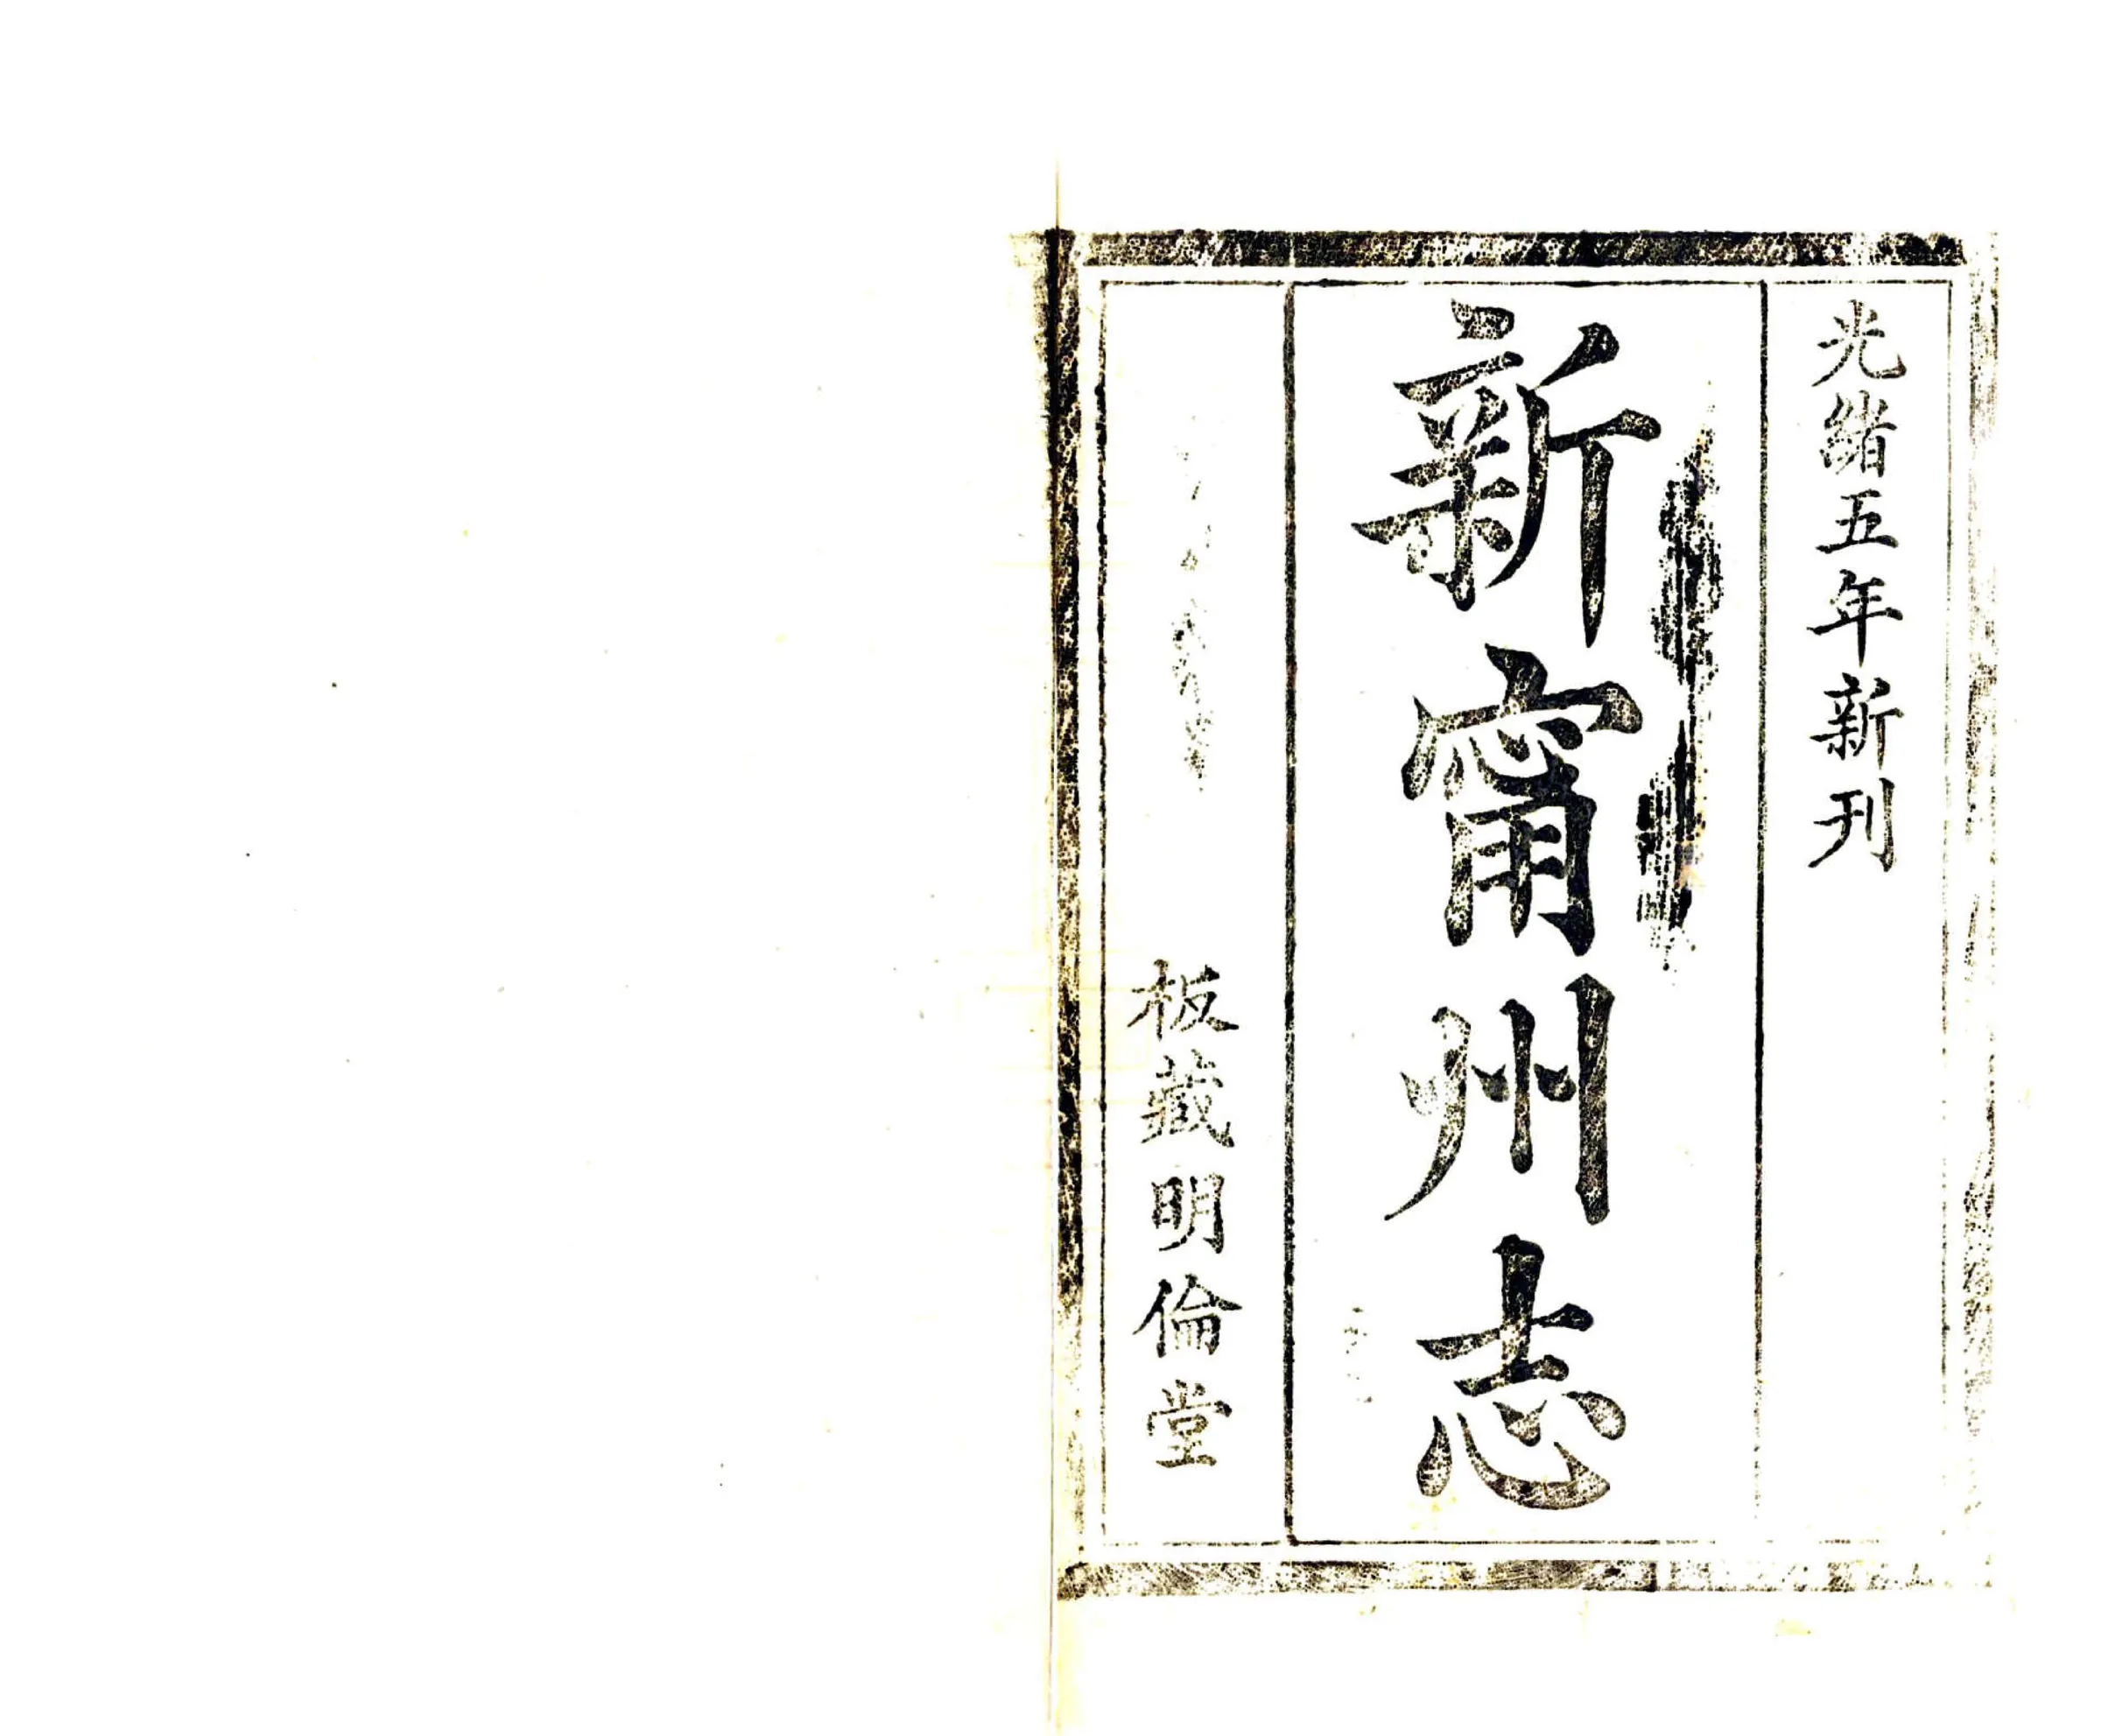 光緒五年新刊
新甯州志
板藏明倫堂